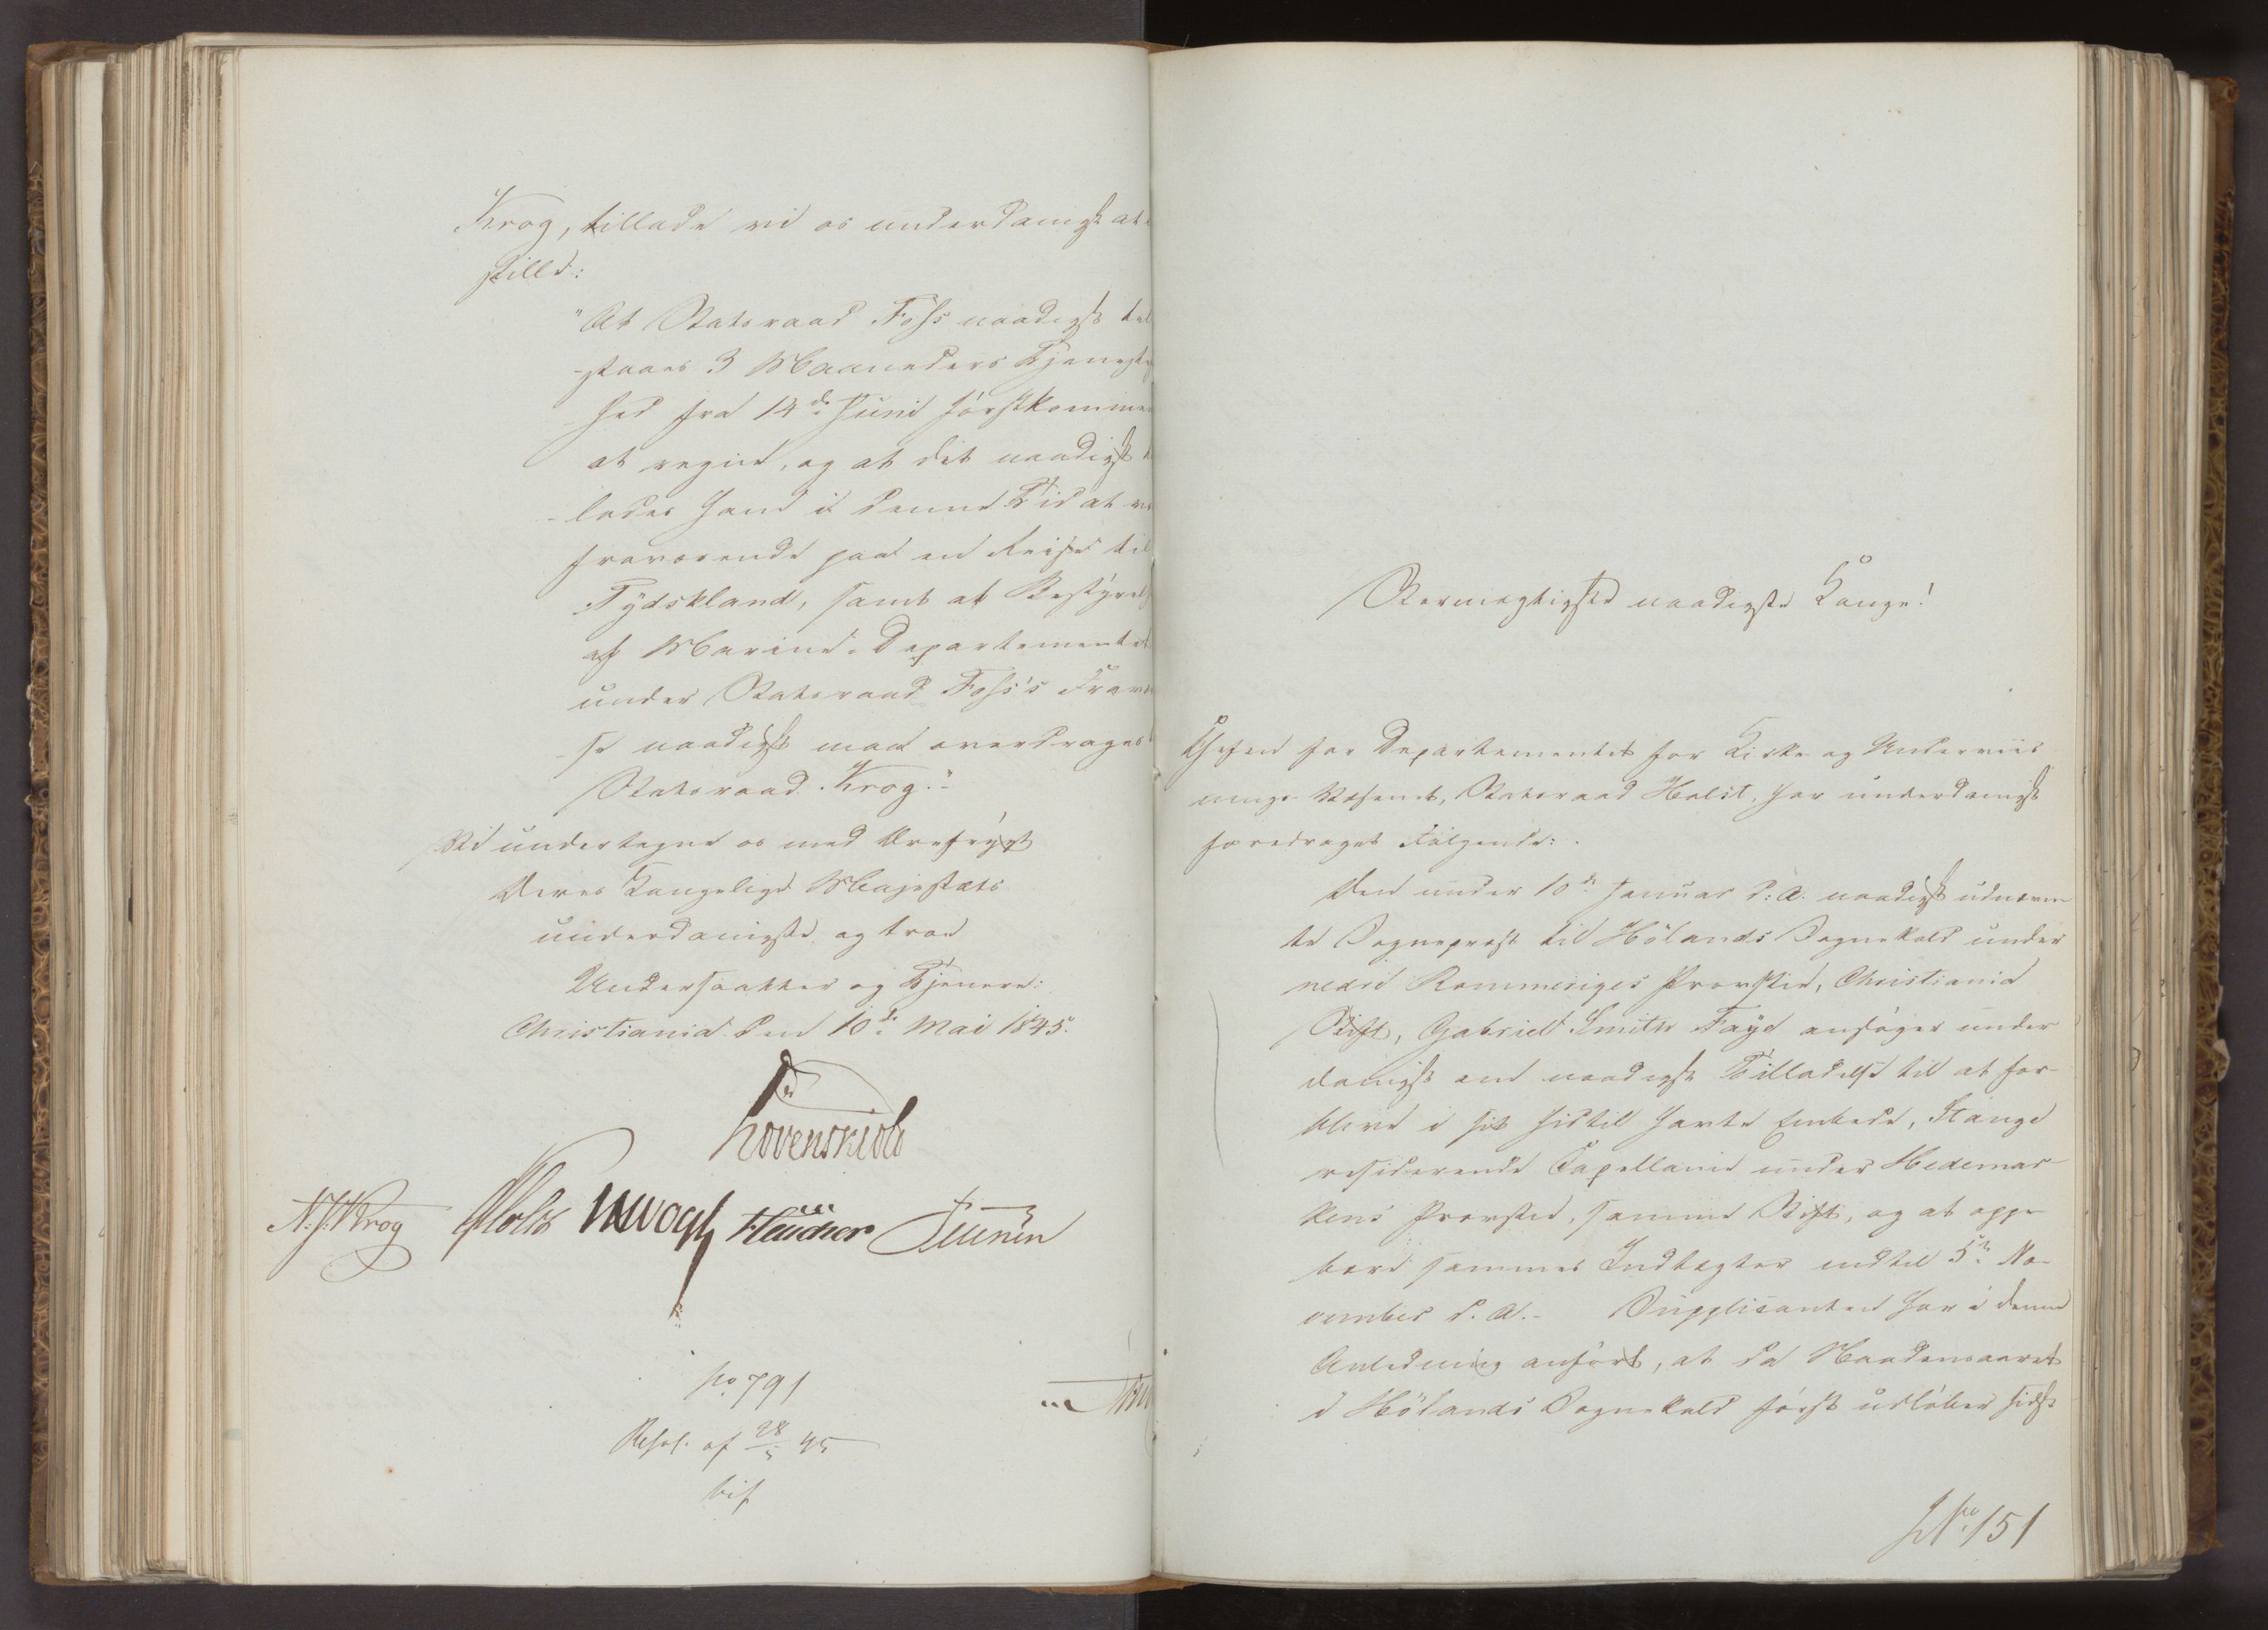 Krog, tillade vi os underdanigst at
stille:
"At Statsraad Foss naadigst til
-staaes 3 Maaneders Tjeneste
hed fra 14de Juni førstkommen
at regne, og at det naadigst
-lades ham i denne Tid at
fraværende paa en Reise til
Tydskland, samt at Bestyrels
af Marine-Departementet
under Statsraad Foss's Fravæ
-se naadigst maa overdrages
Statsraad Krog."
Vi undertegne os med Ærefrygt
Deres Kongelige Majestæts
underdanigste og troe
Undersaatter og Tjenere:
Christiania den 10de Mai 1845.
Løvenskiold
N.J.Krog Holst JHVogt
No 791
Resol. af 28/5 45
bif
Stormægtigste naadigste Konge!
Chefen for Departementet for Kirke og Underviis
nings Væsenet, Statsraad Holst, har underdanigst
foredraget Følgende:
Den under 10de Januar d: A. naadigst udnævn
te Sognepræst til Hölands Sognekald under
nedre Rommeriges Provstie, Christiania
Stift, Gabriel Smith Faye ansöger under
danigst om naadigst Tilladelse til at for-
blive i sit hidtil havte Embede, Stange
residerende Capellanie under Hedemar-
kens Provstie, samme Stift, og at oppe-
bære sammes Indtægter indtil 5te No-
vember d. A. - Supplicanten har i denne
Anledning anfört, at da Naadensaaret
i Hölands Sognekald först udlöber sidst
No 151